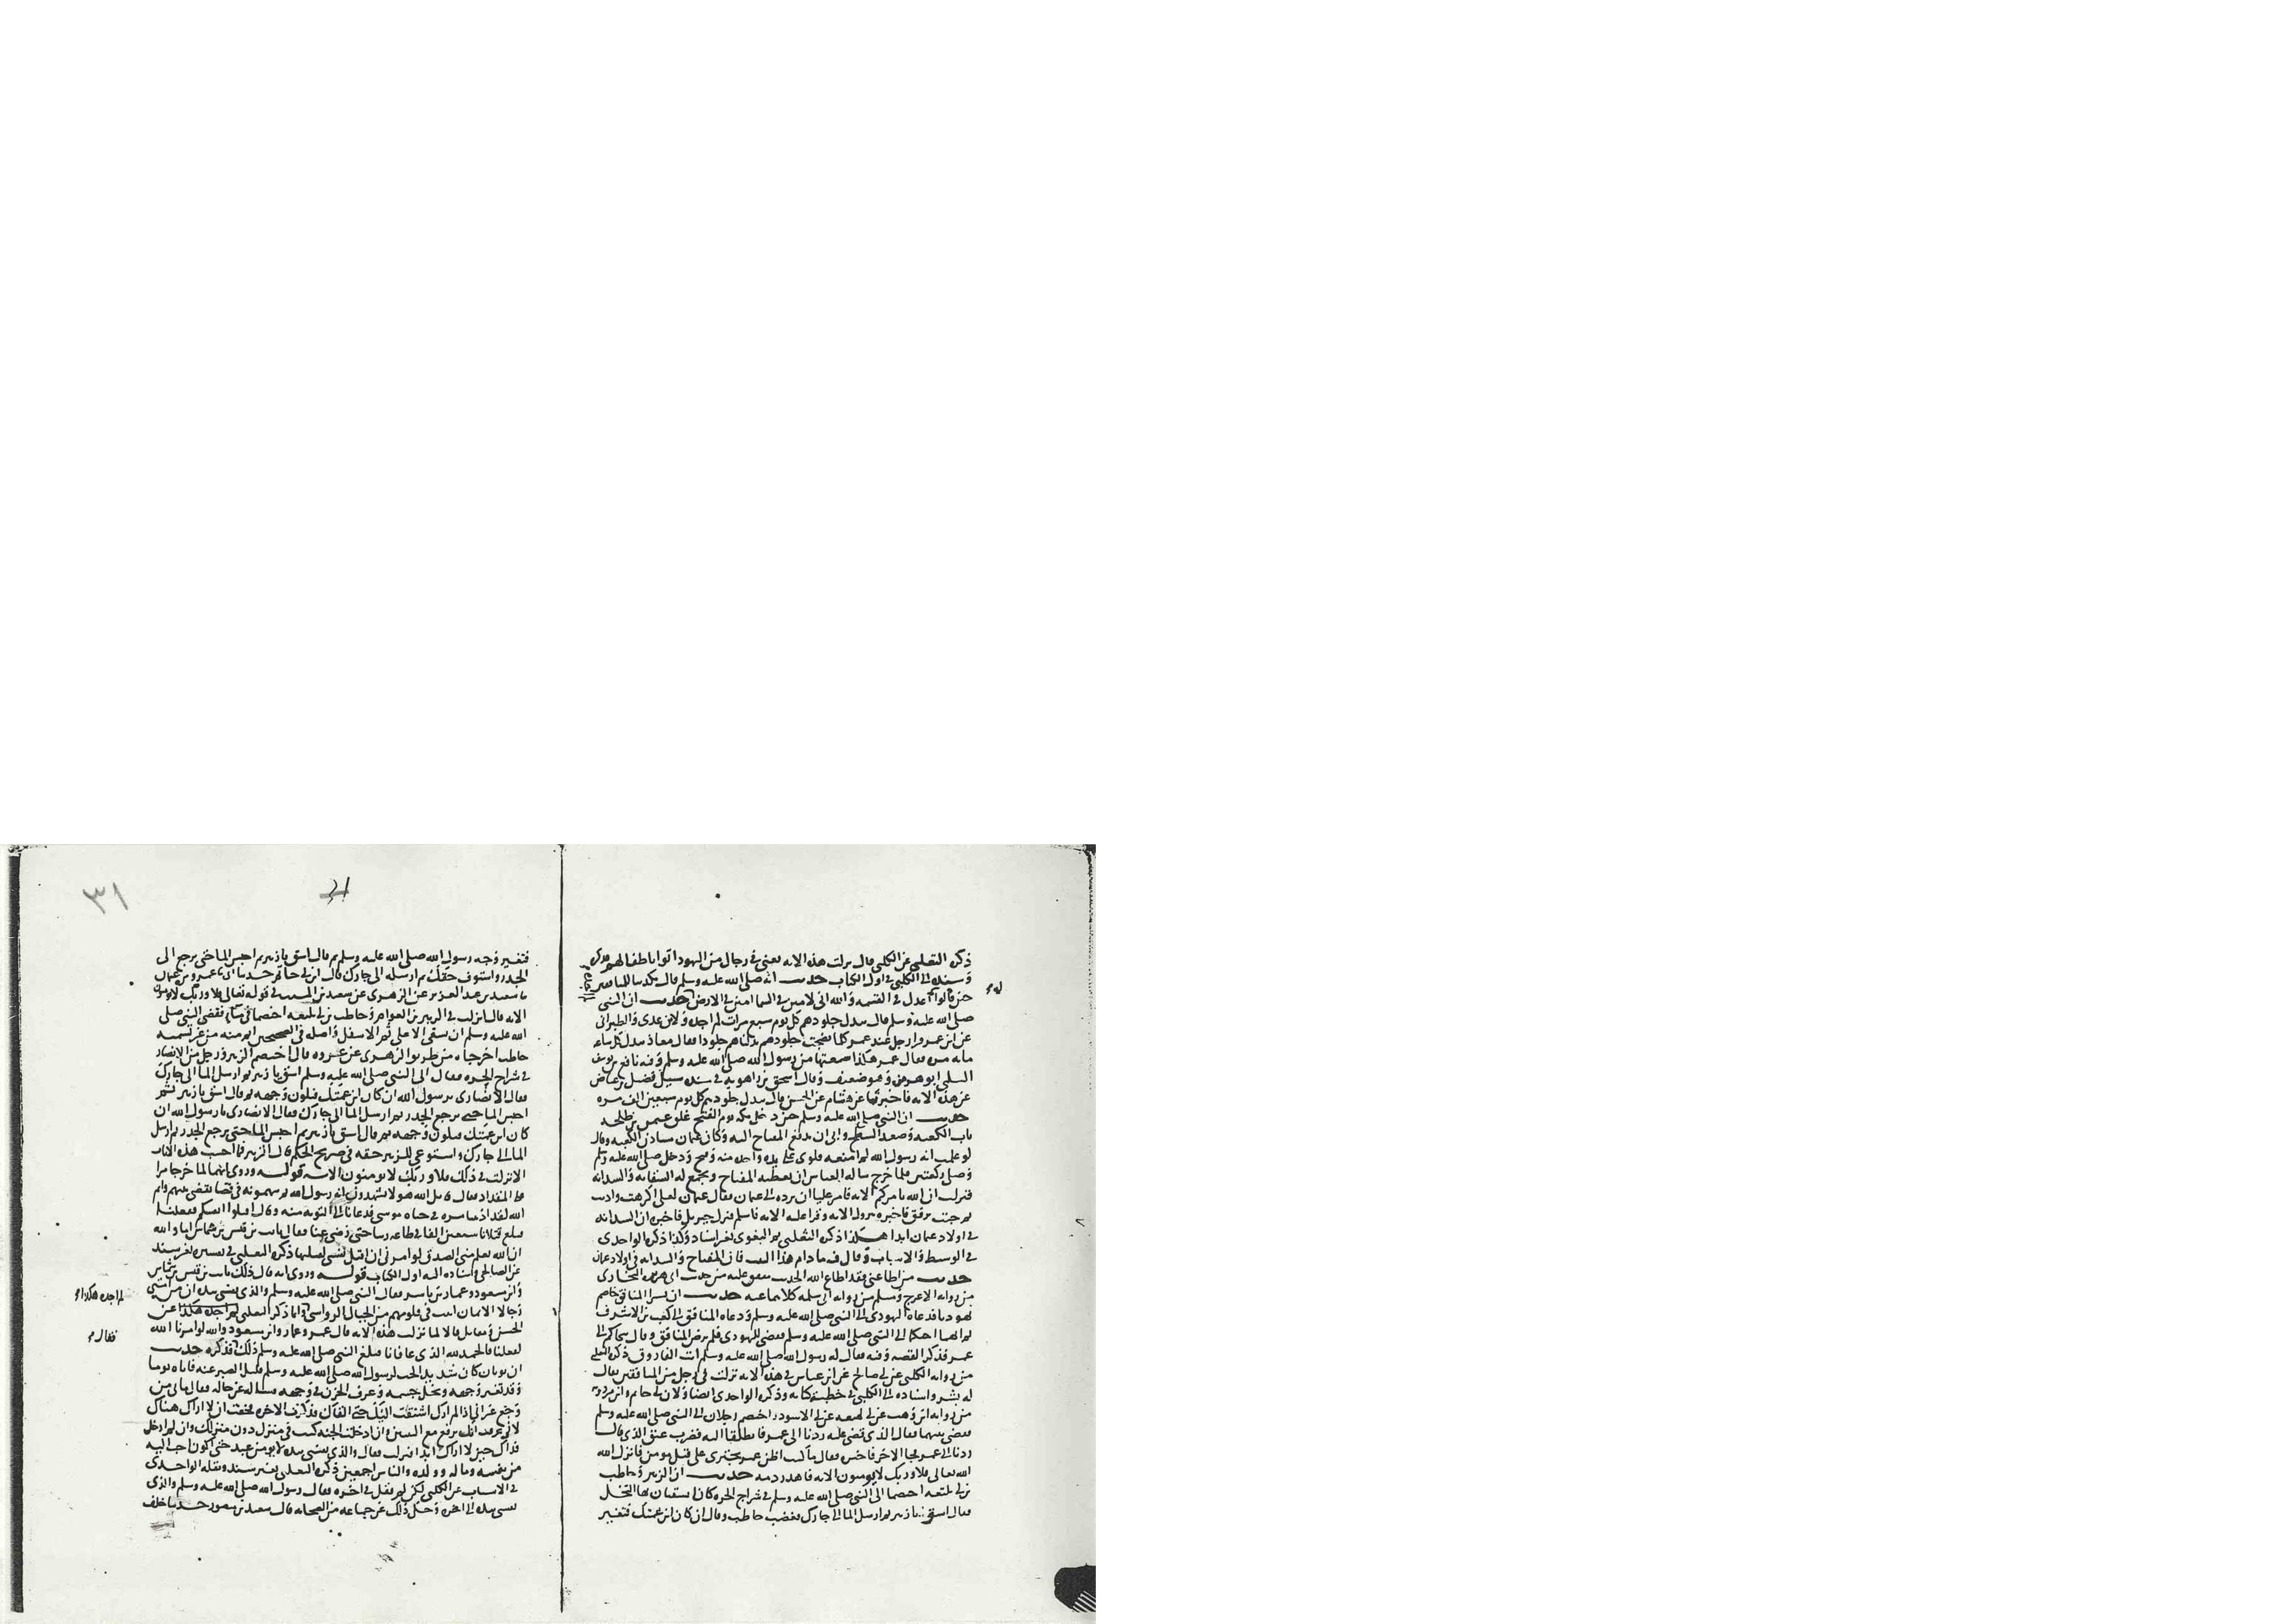 ذكره الثعلبي عن الكلبي قال نزلت هذه الاية يعني في رجال من اليهود اتوا باطفالهم
وسنده الى الكلبي في اول الكتاب حديث انه صلى الله عليه وسلم قال
حين قالوا اعدل في القسمة والله اني لامين في السما امين في الارض حديث ان النبي
صلى الله عليه وسلم قال تبدل جلودهم كل يوم سبع مرات لم اجده ولابن عدي والطبراني
عن ابن عمر قرا رجل عند عمر كلما نضجت جلودهم بدلناهم جلودا فقال معاذ تبدل كل ساعة
ماية مرة فقال عمر هكذا سمعتها من رسول الله صلى الله عليه وسلم وفيه نافع بن يوسف
السلمي ابو هرمز وهو ضعيف وقال اسحق بن راهويه في مسنده سيل فضيل بن عياض
عن هذه الاية فاخبرنا عن هشام عن الحسن قال تبدل جلودهم كل يوم سبعين الف مرة
حديث ان النبي صلى الله عليه وسلم حين دخل مكة يوم الفتح غلق عثمن بن طلحة
باب الكعبة وصعد السطح وابى ان يدفع المفتاح اليه وكان عثمان سادن الكعبة وقال
لو علمت انه رسول الله لم امنعه فلوى علي يده واخذه منه وفتح ودخل صلى الله عليه وسلم
وصلى ركعتين فلما خرج ساله العباس ان يعطيه المفتاح ويجمع له السقاية والسدانة
فنزلت ان الله يامركم الاية فامر عليا ان يرده الى عثمان فقال عثمان لعلي اكرهت واذيت
ثم جيت ترفق فاخبره بنزول الاية وقرا عليه الاية فاسلم فنزل جبريل فاخبره ان السدانة
في اولاد عثمان ابدا هكذا ذكره الثعلبي ثم البغوي بغير اسناد وكذا ذكره الواحدي
في الوسيط والاسباب وقال فيه مادام هذا البيت فان المفتاح والسدانة في اولاد عثمان
حديث من اطاعني فقد اطاع الله الحديث متفق عليه من حديث ابي هريرة البخاري
من رواية الاعرج ومسلم من رواية ابي سلمة كلاهما عنه حديث ان بشرا المنافق خاصم
يهوديا فدعاه اليهودي الى النبي صلى الله عليه وسلم ودعاه المنافق الى كعب بن الاشرف
ثم انهما احتكما الى النبي صلى الله عليه وسلم فقضى لليهودي فلم يرض المنافق وقال نتحاكم الى
عمر فذكر القصة وفيه فقال له رسول الله صلى الله عليه وسلم انت الفاروق ذكره الثعلبي
من رواية الكلبي عن ابي صالح عن ابن عباس في هذه الاية نزلت في رجل من المنافقين يقال
له بشر واسناده الى الكلبي في خطبة كتابه وذكره الواحدي ايضا ولابن ابي حاتم وابن مردويه
من رواية ابن وهب عن ابن لهيعة عن ابي الاسود اختصم رجلان الى النبي صلى الله عليه وسلم
فقضى بينهما فقال الذي قضي عليه ردنا الى عمر فانطلقا اليه فضرب عنق الذي قال
ردنا الى عمر فجا الاخر فاخبره فقال ما كنت اظن عمر يجترئ على قتل مومن فانزل الله
الله تعالى فلا وربك لا يومنون الاية فاهدر دمه حديث ان الزبير وحاطب
بن ابي بلتعة اختصما الى النبي صلى الله عليه وسلم في شراج الحرة كانا يسقيان بها النخل
فقال اسق يا زبير ثم ارسل الما الى جارك فغضب حاطب وقال ان كان ابن عمتك فتغير
٣١
31
فتغير وجه رسول الله صلى الله عليه وسلم ثم قال اسق يا زبير ثم احبس الما حتى يرجع الى
الجدر واستوف حقك ثم ارسله الى جارك قال ابن ابي حاتم حدثنا ابي عمرو بن عثمان
سعيد بن عبد العزيز عن الزهري عن سعيد بن المسيب في قوله تعالى فلا وربك لا يومنون
الاية قال نزلت في الزبير بن العوام وحاطب بن ابي بلتعة اختصما في ما فقضى النبي صلى
الله عليه وسلم ان يسقى الاعلى ثم الاسفل واصله في الصحيحين اتم منه من غير تسمية
حاطب اخرجاه من طريق الزهري عن عروة قال اختصم الزبير ورجل من الانصار
في شراج الحرة فقال النبي صلى الله عليه وسلم اسق يا زبير ثم ارسل الما الى جارك
فقال الانصاري يرسول الله ان كان ابن عمتك فتلون وجهه ثم قال اسق يا زبير ثم
احبس الما حتى يرجع الجدر ثم ارسل الما الى جارك فقال الانصاري يا رسول الله ان
كان ابن عمتك فتلون وجهه ثم قال اسق يا زبير ثم احبس الما حتى يرجع الجدر ثم ارسل
الما الى جارك واستوعى للزبير حقه في صريح الحكم قال الزبير فما احسب هذه الايات
الا نزلت في ذلك فلا وربك لا يومنون الاية قوله وروي انهما لما خرجا مرا
على المقداد فقال قاتل الله هولا يشهدون انه رسول الله ثم يتهمونه في قضا يقضي بينهم وايم
الله لقد اذنبنا مرة في حياة موسى فدعانا الى التوبة منه وقال اقتلوا انفسكم ففعلنا
فبلغ قتلانا سبعين الفا في طاعة ربنا حتى رضي عنا فقال ثابت بن قيس بن شماس اما والله
ان الله يعلم مني الصدق لو امرني ان اقتل نفسي لقتلتها ذكره الثعلبي في تفسيره بغير سند
عن الصالحي واسناده اليه اول الكتاب قوله وروي انه قال ذلك ثابت بن قيس بن شماس
وابن مسعود وعمار بن ياسر فقال النبي صلى الله عليه وسلم والذي نفسي بيده ان من امتي
رجالا الايمان اثبت في قلوبهم من الجبال الرواسي وانما ذكر الثعلبي لم اجده هكذا عن
الحسن ومقاتل قالا لما نزلت هذه الاية قال عمر وعمار وابن مسعود والله لو امرنا الله
لفعلنا فالحمد لله الذي عافانا فبلغ النبي صلى الله عليه وسلم ذلك فذكره حديث
ان ثوبان كان شديد الحب لرسول الله صلى الله عليه وسلم قليل الصبر عنه فاتاه يوما
وقد تغير وجهه ونحل جسمه وعرف الحزن في وجهه فساله عن حاله فقال ما بي من
وجع غير اني اذا لم ارك اشتقت اليك حتى القاك فذكرت الاخرة فخفت ان لا اراك هناك
لاني عرفت انك ترفع مع النبيين وان ادخلت الجنة كنت في منزل دون منزلك وان لم ادخل
فذاك حين لا اراك ابدا فنزلت فقال والذي نفسي بيده لا يومن عبد حتى اكون احب اليه
من نفسه وماله وولده والناس اجمعين ذكره الثعلبي بغير سند ونقله الواحدي
في الاسباب عن الكلبي لكن لم يقل في اخره فقال رسول الله صلى الله عليه وسلم والذي
نفسي بيده الى اخره وحكى ذلك عن جماعة من الصحابة قال سعيد بن منصور حدثنا خلف
لم اجده هكذا
فقال